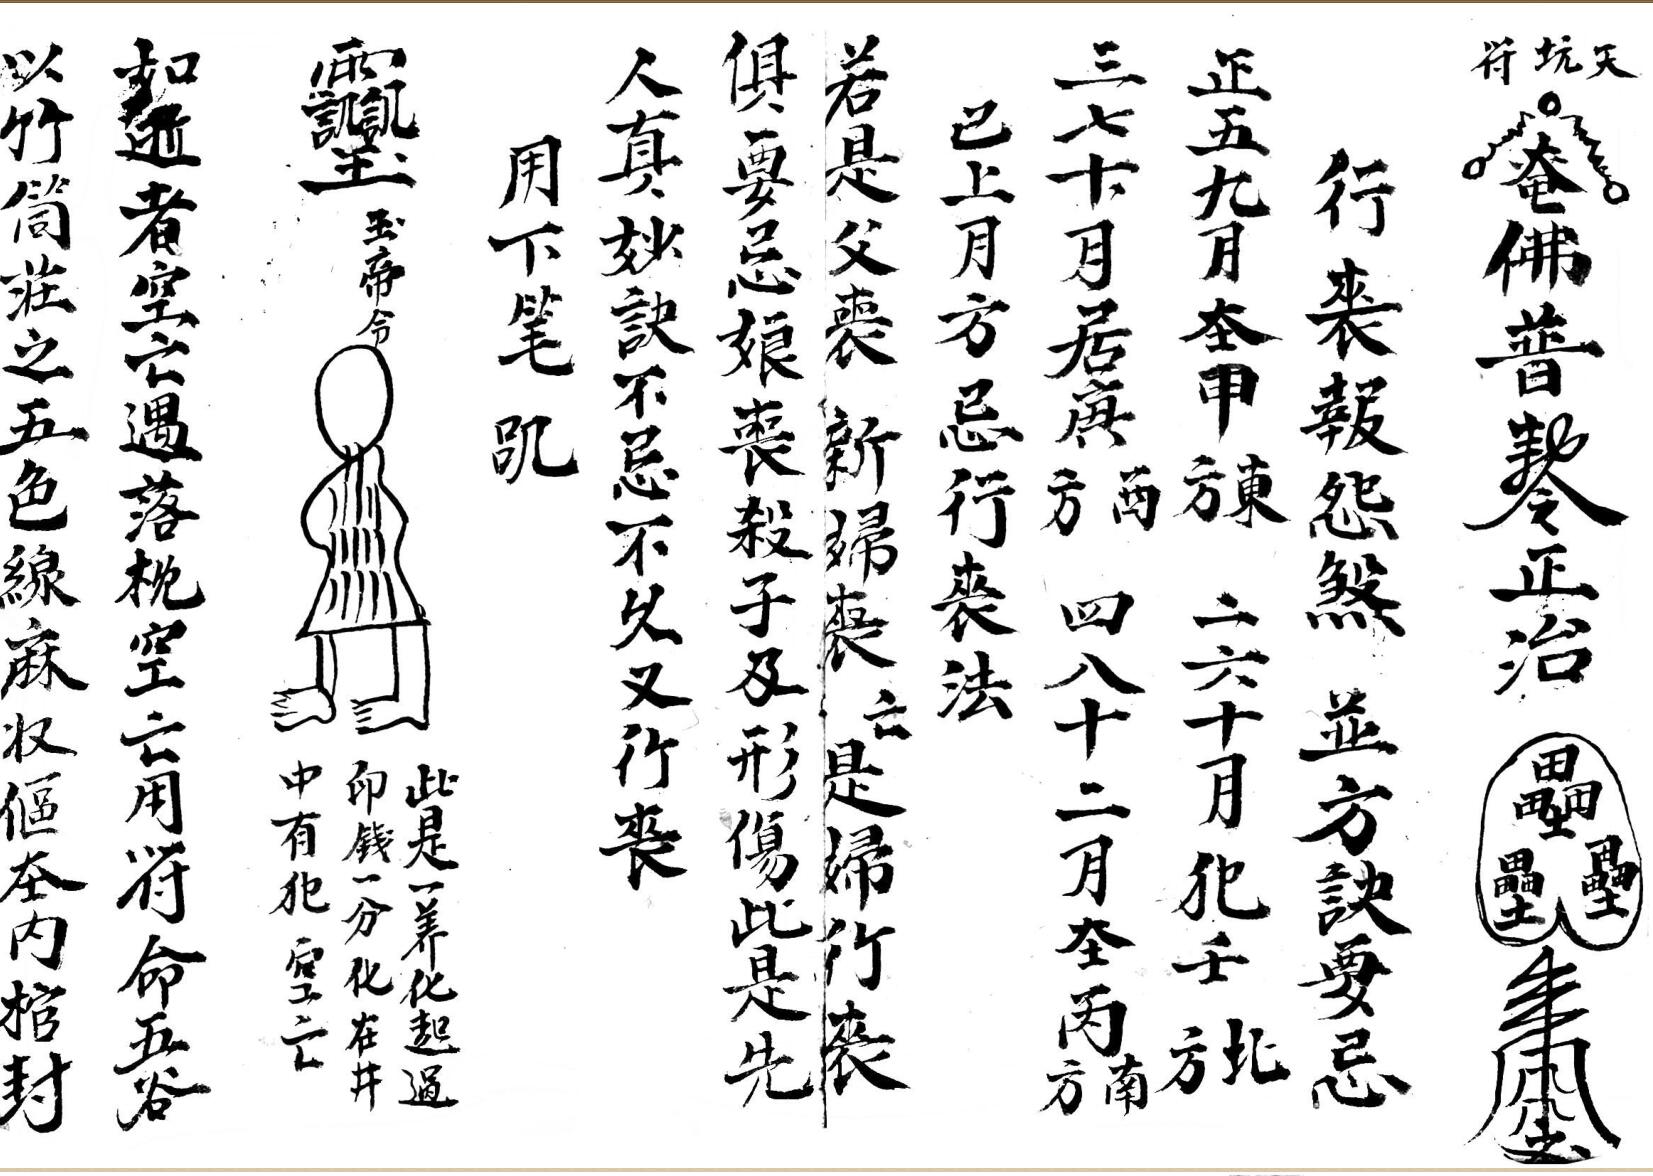 天坑符
奄佛普勅令正治
行喪報怨煞　並方訣要忌
正五九月在甲東方　二六十月犯壬北方
三七十月居庚酉方　四八十二月在丙南方
已上月方忌行喪法
若是父喪　新婦喪亡是婦行喪
俱要忌娘喪殺子及形傷此是先
人真妙訣不忌不久又行喪
用下笔
玉帝令
此是一养化起過
印錢一分化在井
中有犯空亡
如逝者空亡遇落枕空亡用符命五谷
以竹筒莊之五色線麻收傴在内棺封